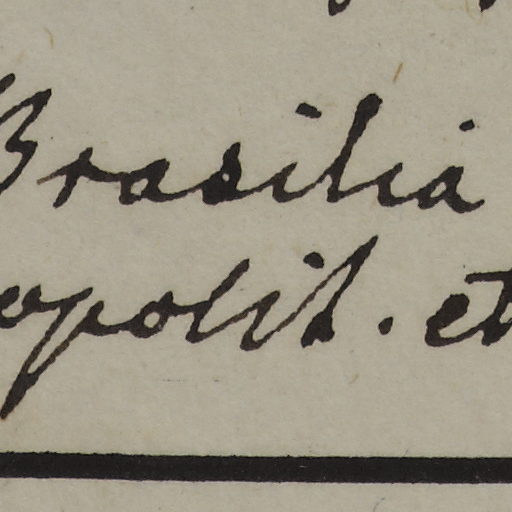 Brasilia
opolit. et